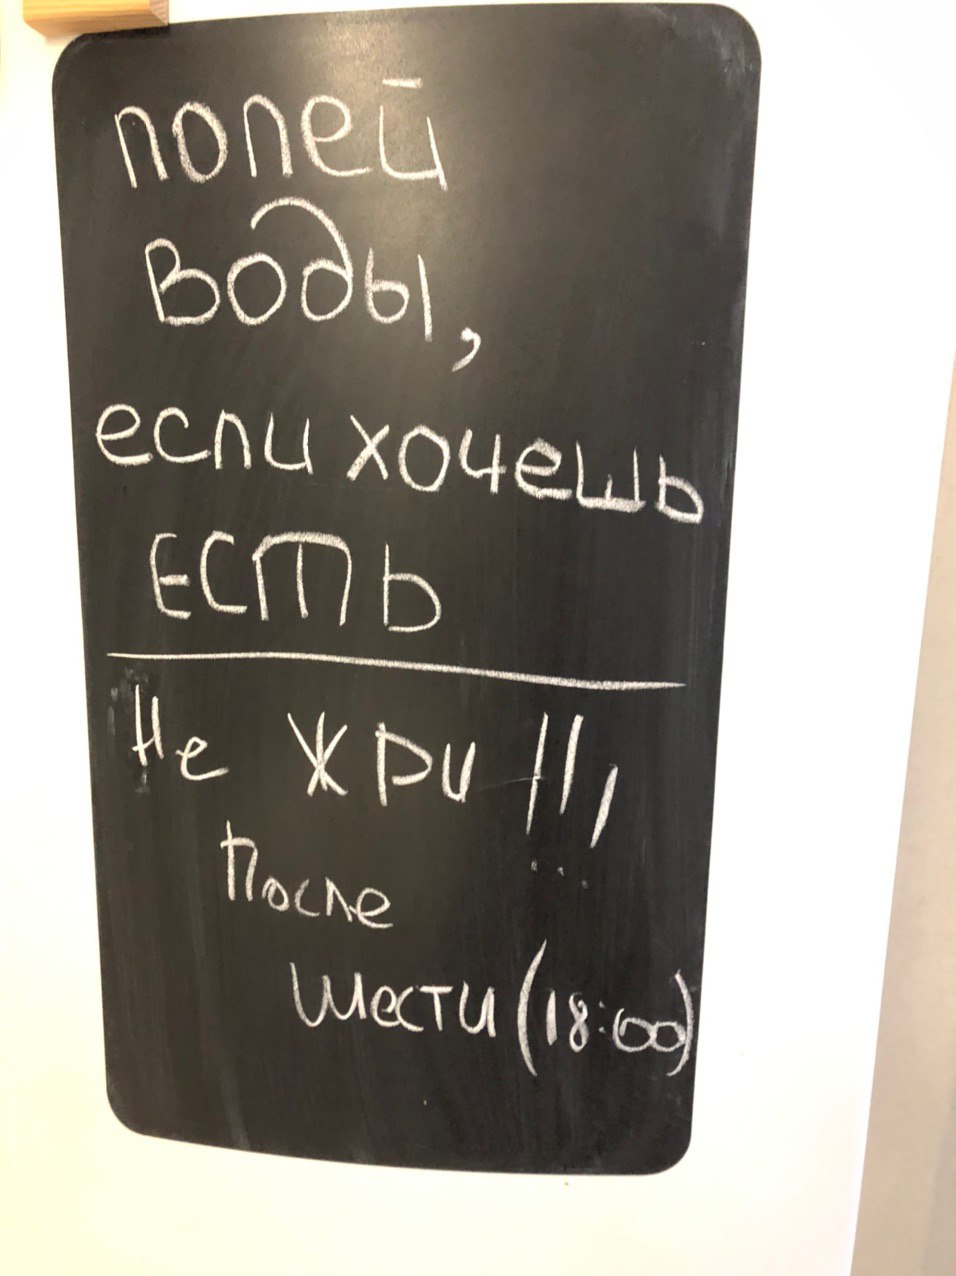 попей
воды,
если хочешь
есть
Не жри!!!
После
шести (18:00)